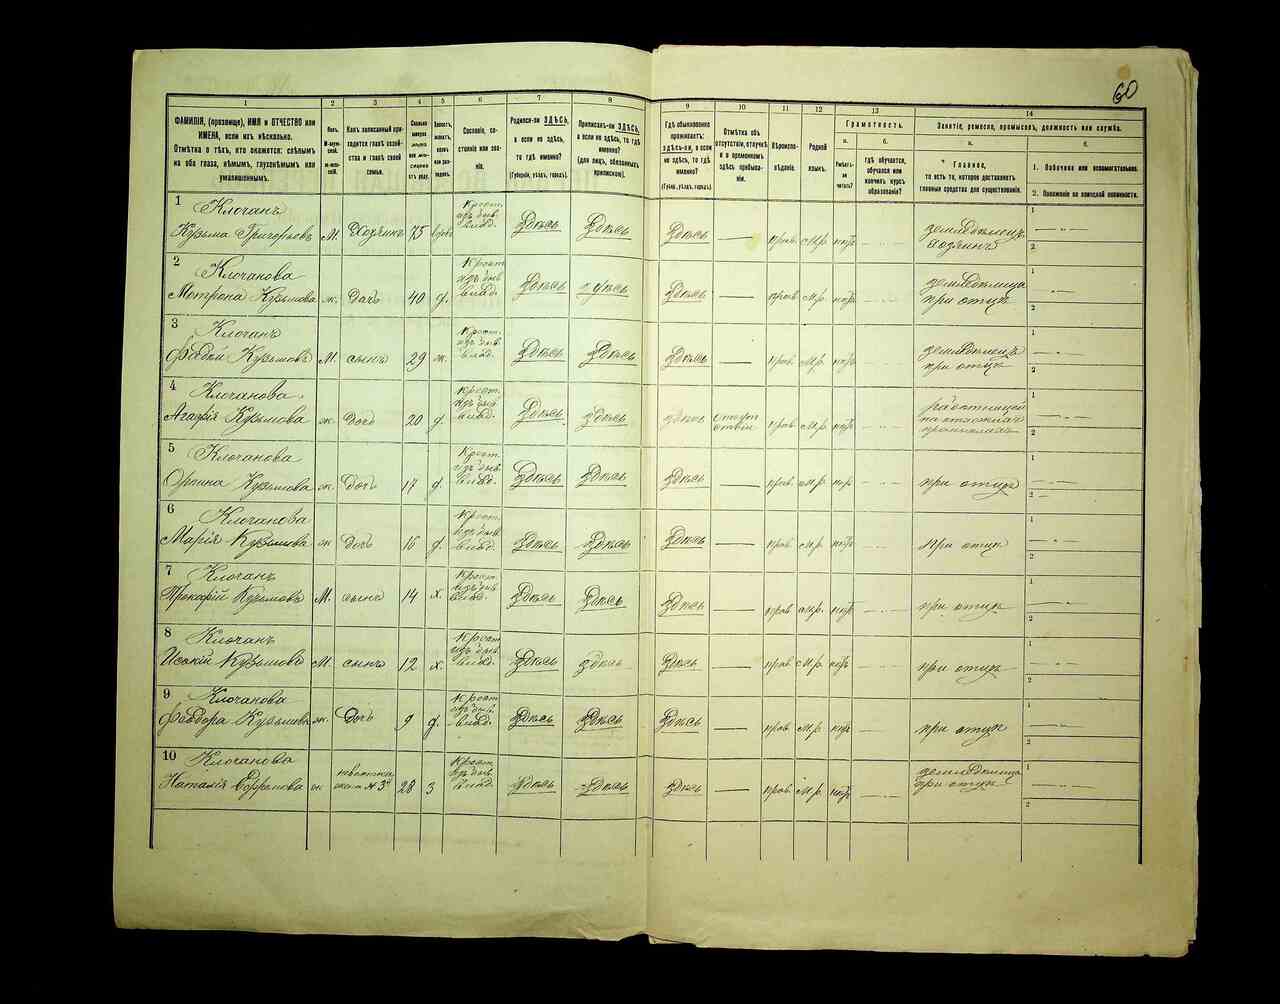 60
1
2
3
4
5
6
7
8
9
10
11
12
13
14
ФАМИЛІЯ, (прозвище), ИМЯ и ОТЧЕСТВО или
ИМЕНА, если ихъ нѣсколько.
Отмѣтка о тѣхъ, кто окажется: слѣпымъ
на оба глаза, нѣмымъ, глухонѣмымъ или
умалишеннымъ.
Полъ.
Какъ записанный при-
ходится главѣ хозяй-
ства и главѣ своей
семьи.
Сословіе, со-
стояніе или зва-
ніе.
Родился-ли ЗДѢСЬ,
а если не здѣсь,
то гдѣ именно?
(Губернія, уѣздъ, городъ).
Приписанъ-ли ЗДѢСЬ,
а если не здѣсь, то гдѣ
именно?
(для лицъ, обязанныхъ
припискою).
Гдѣ обыкновенно
проживаетъ:
ЗДѢСЬ-ли, а если
не здѣсь, то гдѣ
именно?
(Губер., уѣздъ, городъ).
Отмѣтка объ
отсутствіи, отлучкѣ
и о временномъ
здѣсь пребыва-
ніи.
Вѣроиспо-
вѣданіе.
Родной
языкъ.
Грамотность.
а.
Умѣетъ-
ли
читать?
б.
гдѣ обучается,
обучался или
кончилъ курсъ
образованія?
Занятіе, ремесло, промыселъ, должность или служба.
а.
Главное,
то есть то, которое доставляетъ
главныя средства для существованія.
б.
1. Побочное или вспомогательное.
2. Положеніе по воинской повинности.
1 Клочанъ
Кузьма Григорьевъ М. Хозяинъ 75 вдов Крест. изъ быв. влад. Здѣсь Здѣсь Здѣсь — прав М.р. нѣтъ — земледѣлецъ хозяинъ 1 2
2 Клочанова
Мотрона Кузьмова ж. Дочь 40 д. Крест. изъ быв. влад. Здѣсь Здѣсь Здѣсь — прав М.р. нѣтъ — земледѣлица при отцѣ 1 2
3 Клочанъ
Фадей Кузьмовъ М. сынъ 29 ж. Крест. изъ быв. влад. Здѣсь Здѣсь Здѣсь — прав М.р. нѣтъ — земледѣлецъ при отцѣ 1 2
4 Клочанова
Агафія Кузьмова ж. Дочь 20 д. Крест. изъ быв. влад. Здѣсь Здѣсь Здѣсь отсутствіи прав М.р. нѣтъ — 1 2
5 Клочанова
Кузьмова ж. Дочь 17 д. Крест. изъ быв. влад. Здѣсь Здѣсь Здѣсь — прав М.р. нѣтъ — при отцѣ 1 2
6 Клочанова
Марія Кузьмова ж Дочь 16 д. Крест. изъ быв. влад. Здѣсь Здѣсь Здѣсь — прав М.р. нѣтъ — при отцѣ 1 2
7 Клочанъ
Кузьмовъ М. сынъ 14 х. Крест. изъ быв. влад. Здѣсь Здѣсь Здѣсь — прав М.р. нѣтъ — при отцѣ 1 2
8 Клочанъ
Кузьмовъ М. сынъ 12 х. Крест. изъ быв. влад. Здѣсь Здѣсь Здѣсь — прав М.р. нѣтъ — при отцѣ 1 2
9 Клочанова
Кузьмова ж. Дочь 9 д. Крест. изъ быв. влад. Здѣсь Здѣсь Здѣсь — прав М.р. нѣтъ — при отцѣ 1 2
10 Клочанова
Наталія Ефремова ж 28 З Крест. изъ быв. влад. Здѣсь Здѣсь Здѣсь — прав М.р. нѣтъ — земледѣлица при отцѣ 1 2